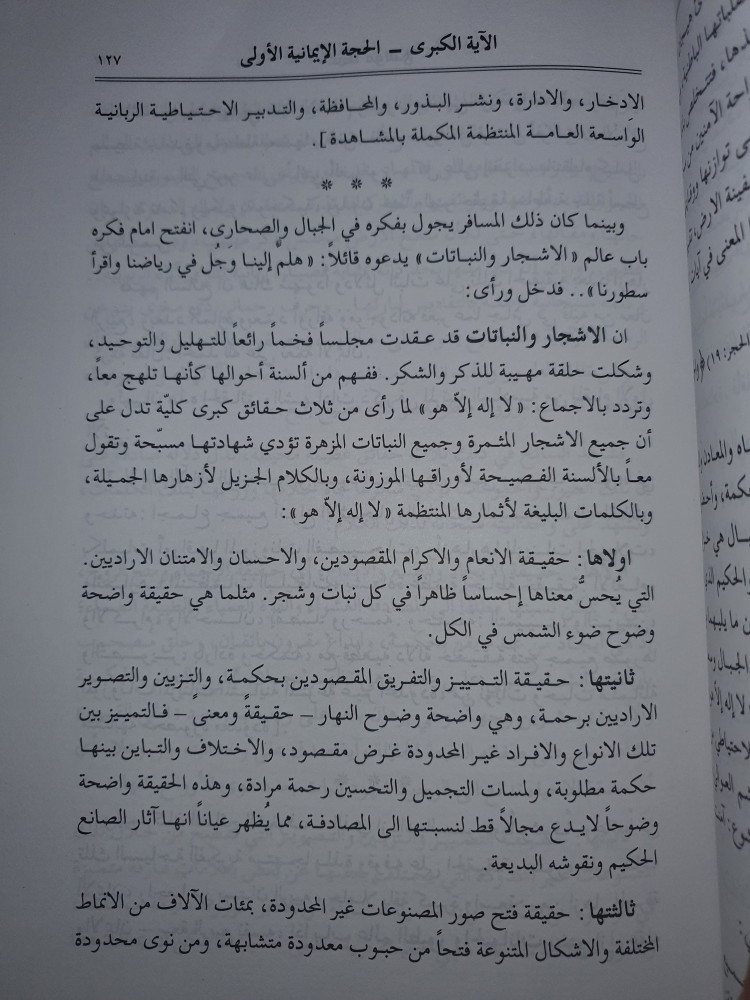 الآية الكبرى – الحجة الإيمانية الأولى ١٢٧
الإدخار، والادارة، ونشر البذور، والمحافظة، والتدبير الاحتياطية الربانية
الواسعة العامة المنتظمة المكملة بالمشاهدة].
* * *
وبينما كان ذلك المسافر يجول بفكره في الجبال والصحارى، انفتح امام فكره
باب عالم «الاشجار والنباتات» يدعوه قائلاً: «هلمّ إلينا وَجُل في رياضنا واقرأ
سطورنا».. فدخل ورأى:
ان الاشجار والنباتات قد عقدت مجلساً فخماً رائعاً للتهليل والتوحيد،
وشكلت حلقة مهيبة للذكر والشكر. ففهم من ألسنة أحوالها كأنها تلهج معاً،
وتردد بالاجماع: «لا إله إلاّ هو» لما رأى من ثلاث حقائق كبرى كليّة تدل على
أن جميع الاشجار المثمرة وجميع النباتات المزهرة تؤدي شهادتها مسبّحة وتقول
معاً بالألسنة الفصيحة لأوراقها الموزونة، وبالكلام الجزيل لأزهارها الجميلة،
وبالكلمات البليغة لأثمارها المنتظمة «لا إله إلاّ هو»:
اولاها: حقيقة الانعام والاكرام المقصودين، والاحسان والامتنان الاراديين.
التي يُحسُّ معناها إحساساً ظاهراً في كل نبات وشجر. مثلما هي حقيقة واضحة
وضوح ضوء الشمس في الكل.
ثانيتها: حقيقة التمييز والتفريق المقصودين بحكمة، والتزيين والتصوير
الاراديين برحمة، وهي واضحة وضوح النهار – حقيقةً ومعنىً – فالتمييز بين
تلك الانواع والافراد غير المحدودة غرض مقصود، والاختلاف والتباين بينها
حكمة مطلوبة، ولمسات التجميل والتحسين رحمة مرادة، وهذه الحقيقة واضحة
وضوحاً لايدع مجالاً قط لنسبتها الى المصادفة، مما يُظهر عياناً انها آثار الصانع
الحكيم ونقوشه البديعة.
ثالثتها: حقيقة فتح صور المصنوعات غير المحدودة، بمئات الآلاف من الانماط
المختلفة والاشكال المتنوعة فتحاً من حبوب معدودة متشابهة، ومن نوى محدودة